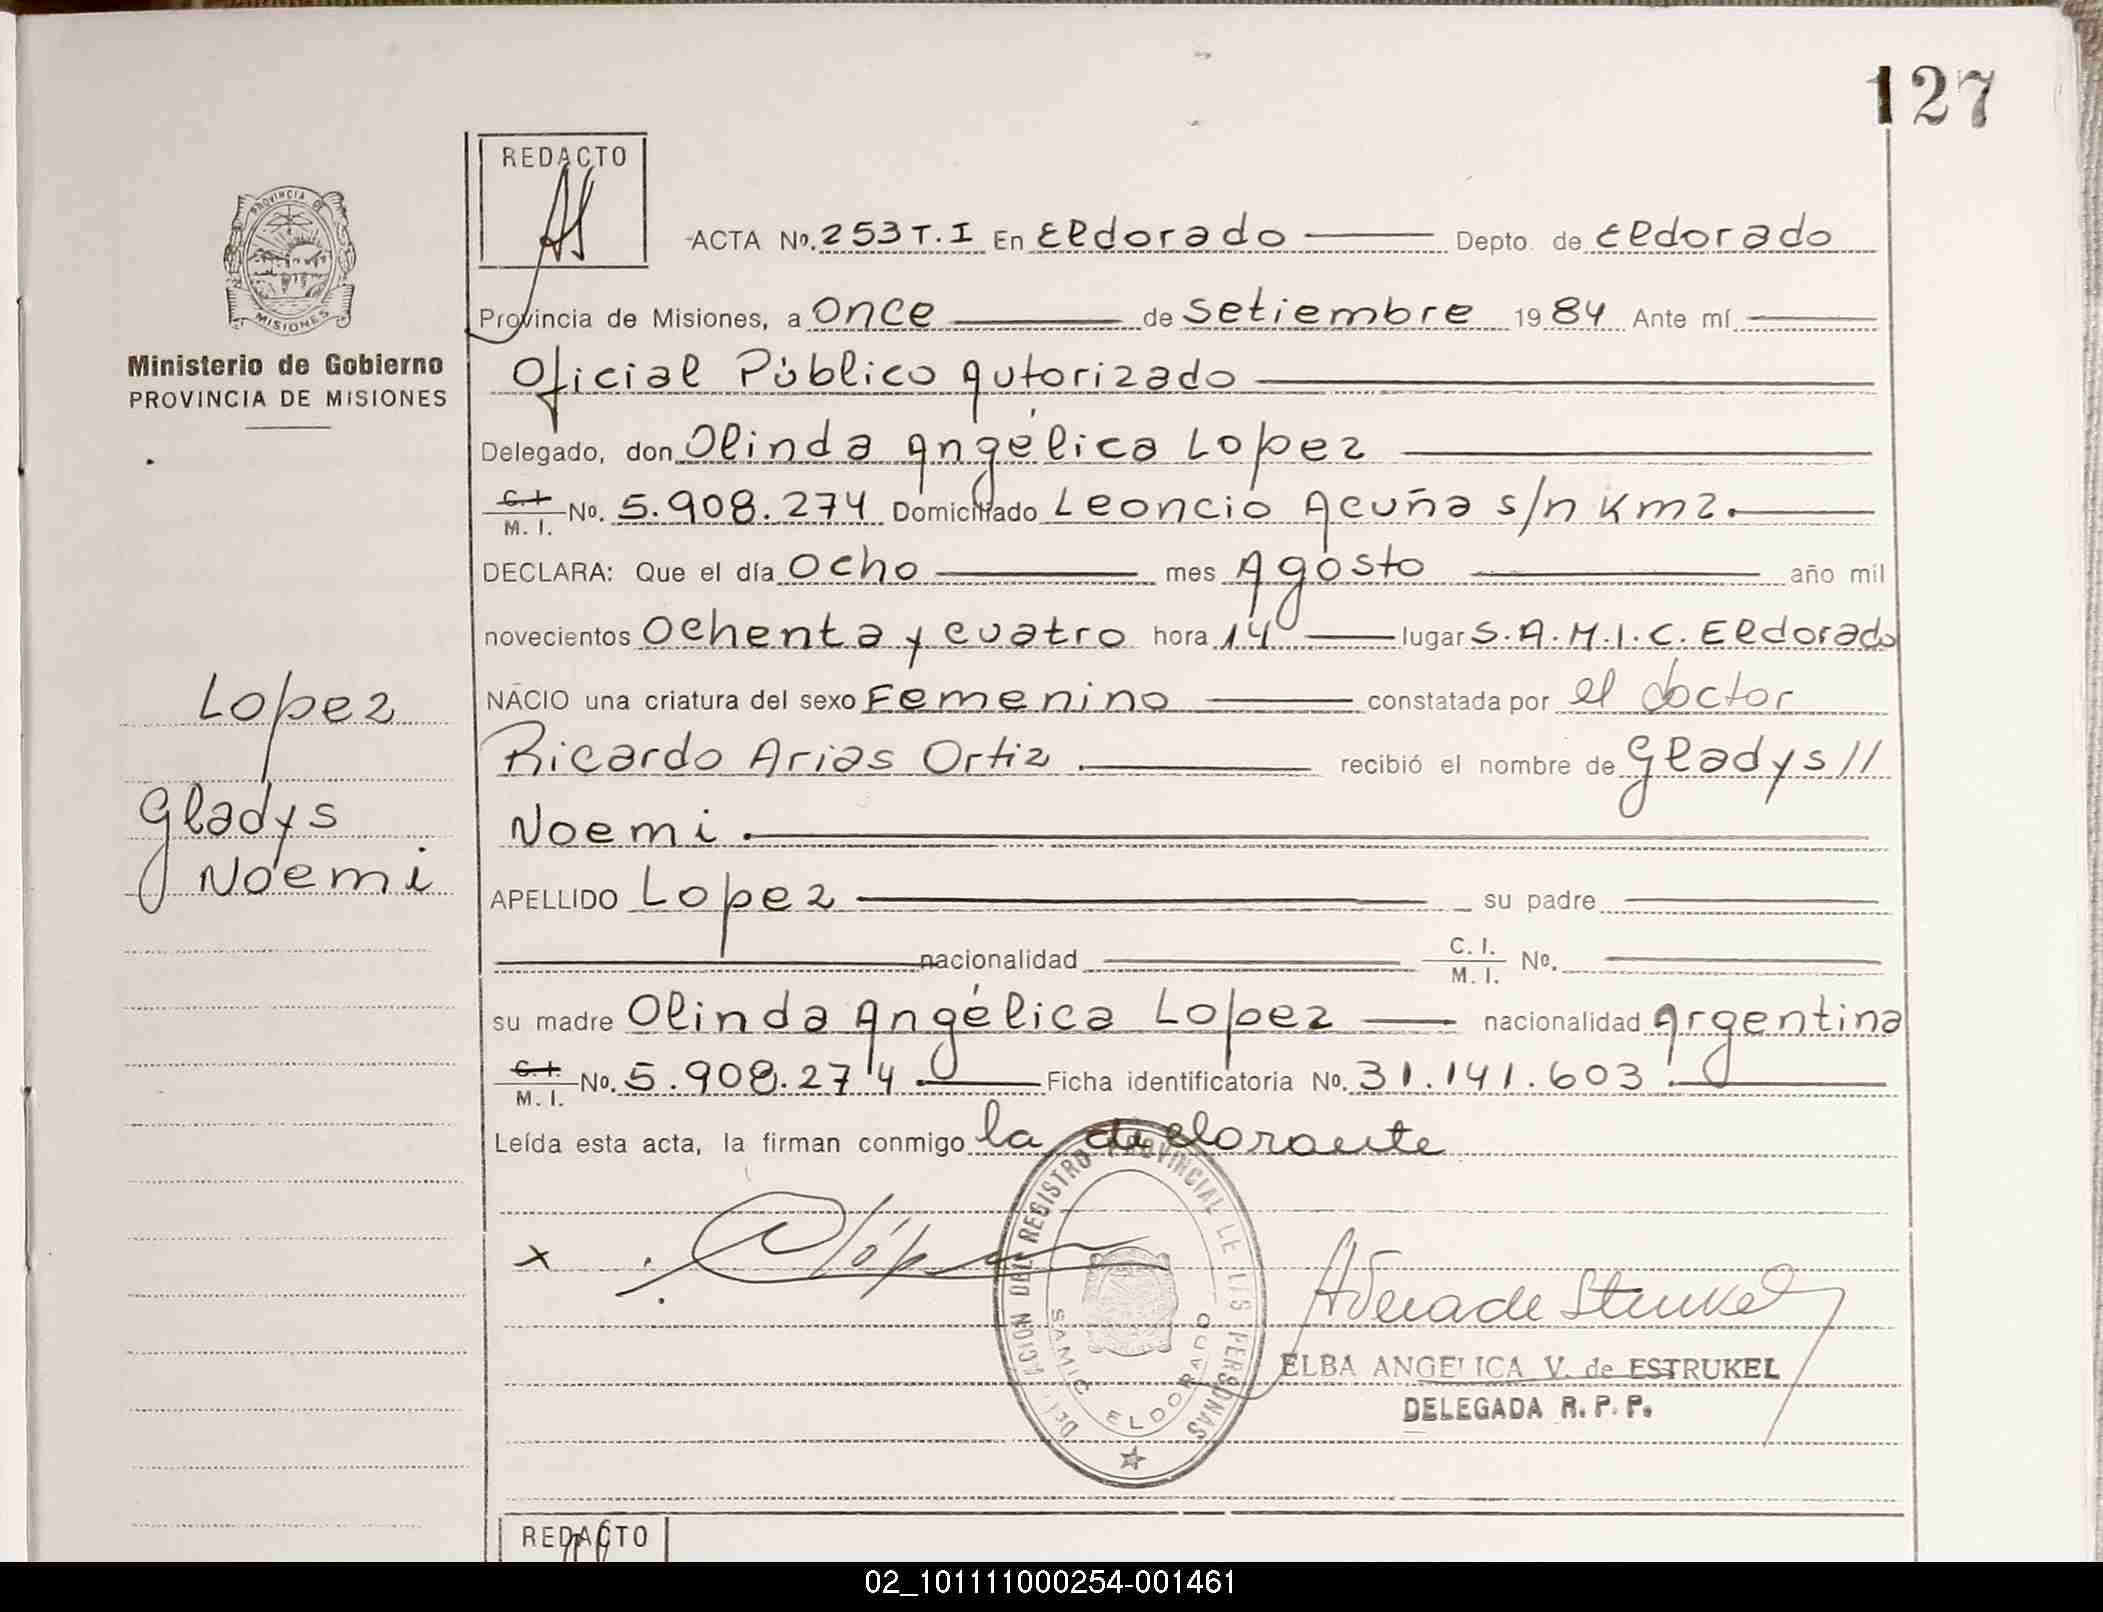 127
REDACTO
PROVINCIA DE
MISIONES
Ministerio de Gobierno
PROVINCIA DE MISIONES
ACTA No. 253 T.I En Eldorado Depto. de Eldorado
Provincia de Misiones, a Once de Setiembre 1984 Ante mí
Oficial Público Autorizado
Delegado, don Olinda Angélica Lopez
C.I. M.I. No. 5.908.274 Domiciliado Leoncio Acuña s/n Km 2.
DECLARA: Que el día Ocho mes Agosto año mil
novecientos Ochenta y cuatro hora 14 lugar S.A.M.I.C. Eldorado
NACIO una criatura del sexo Femenino constatada por el doctor
Ricardo Arias Ortiz. recibió el nombre de Gladys//
Noemi.
APELLIDO Lopez su padre
nacionalidad C. I. M. I. No.
su madre Olinda Angélica Lopez nacionalidad Argentina
C.I. M.I. No. 5.908.274. Ficha identificatoria No. 31.141.603.
Leída esta acta, la firman conmigo la declarante
Lopez
Gladys
Noemi
x López
DEL REGISTRO PROVINCIAL DE LAS PERSONAS
SAMIC ELDORADO
ELBA ANGELICA V. de ESTRUKEL
DELEGADA R. P. P.
REDACTO
02_101111000254-001461